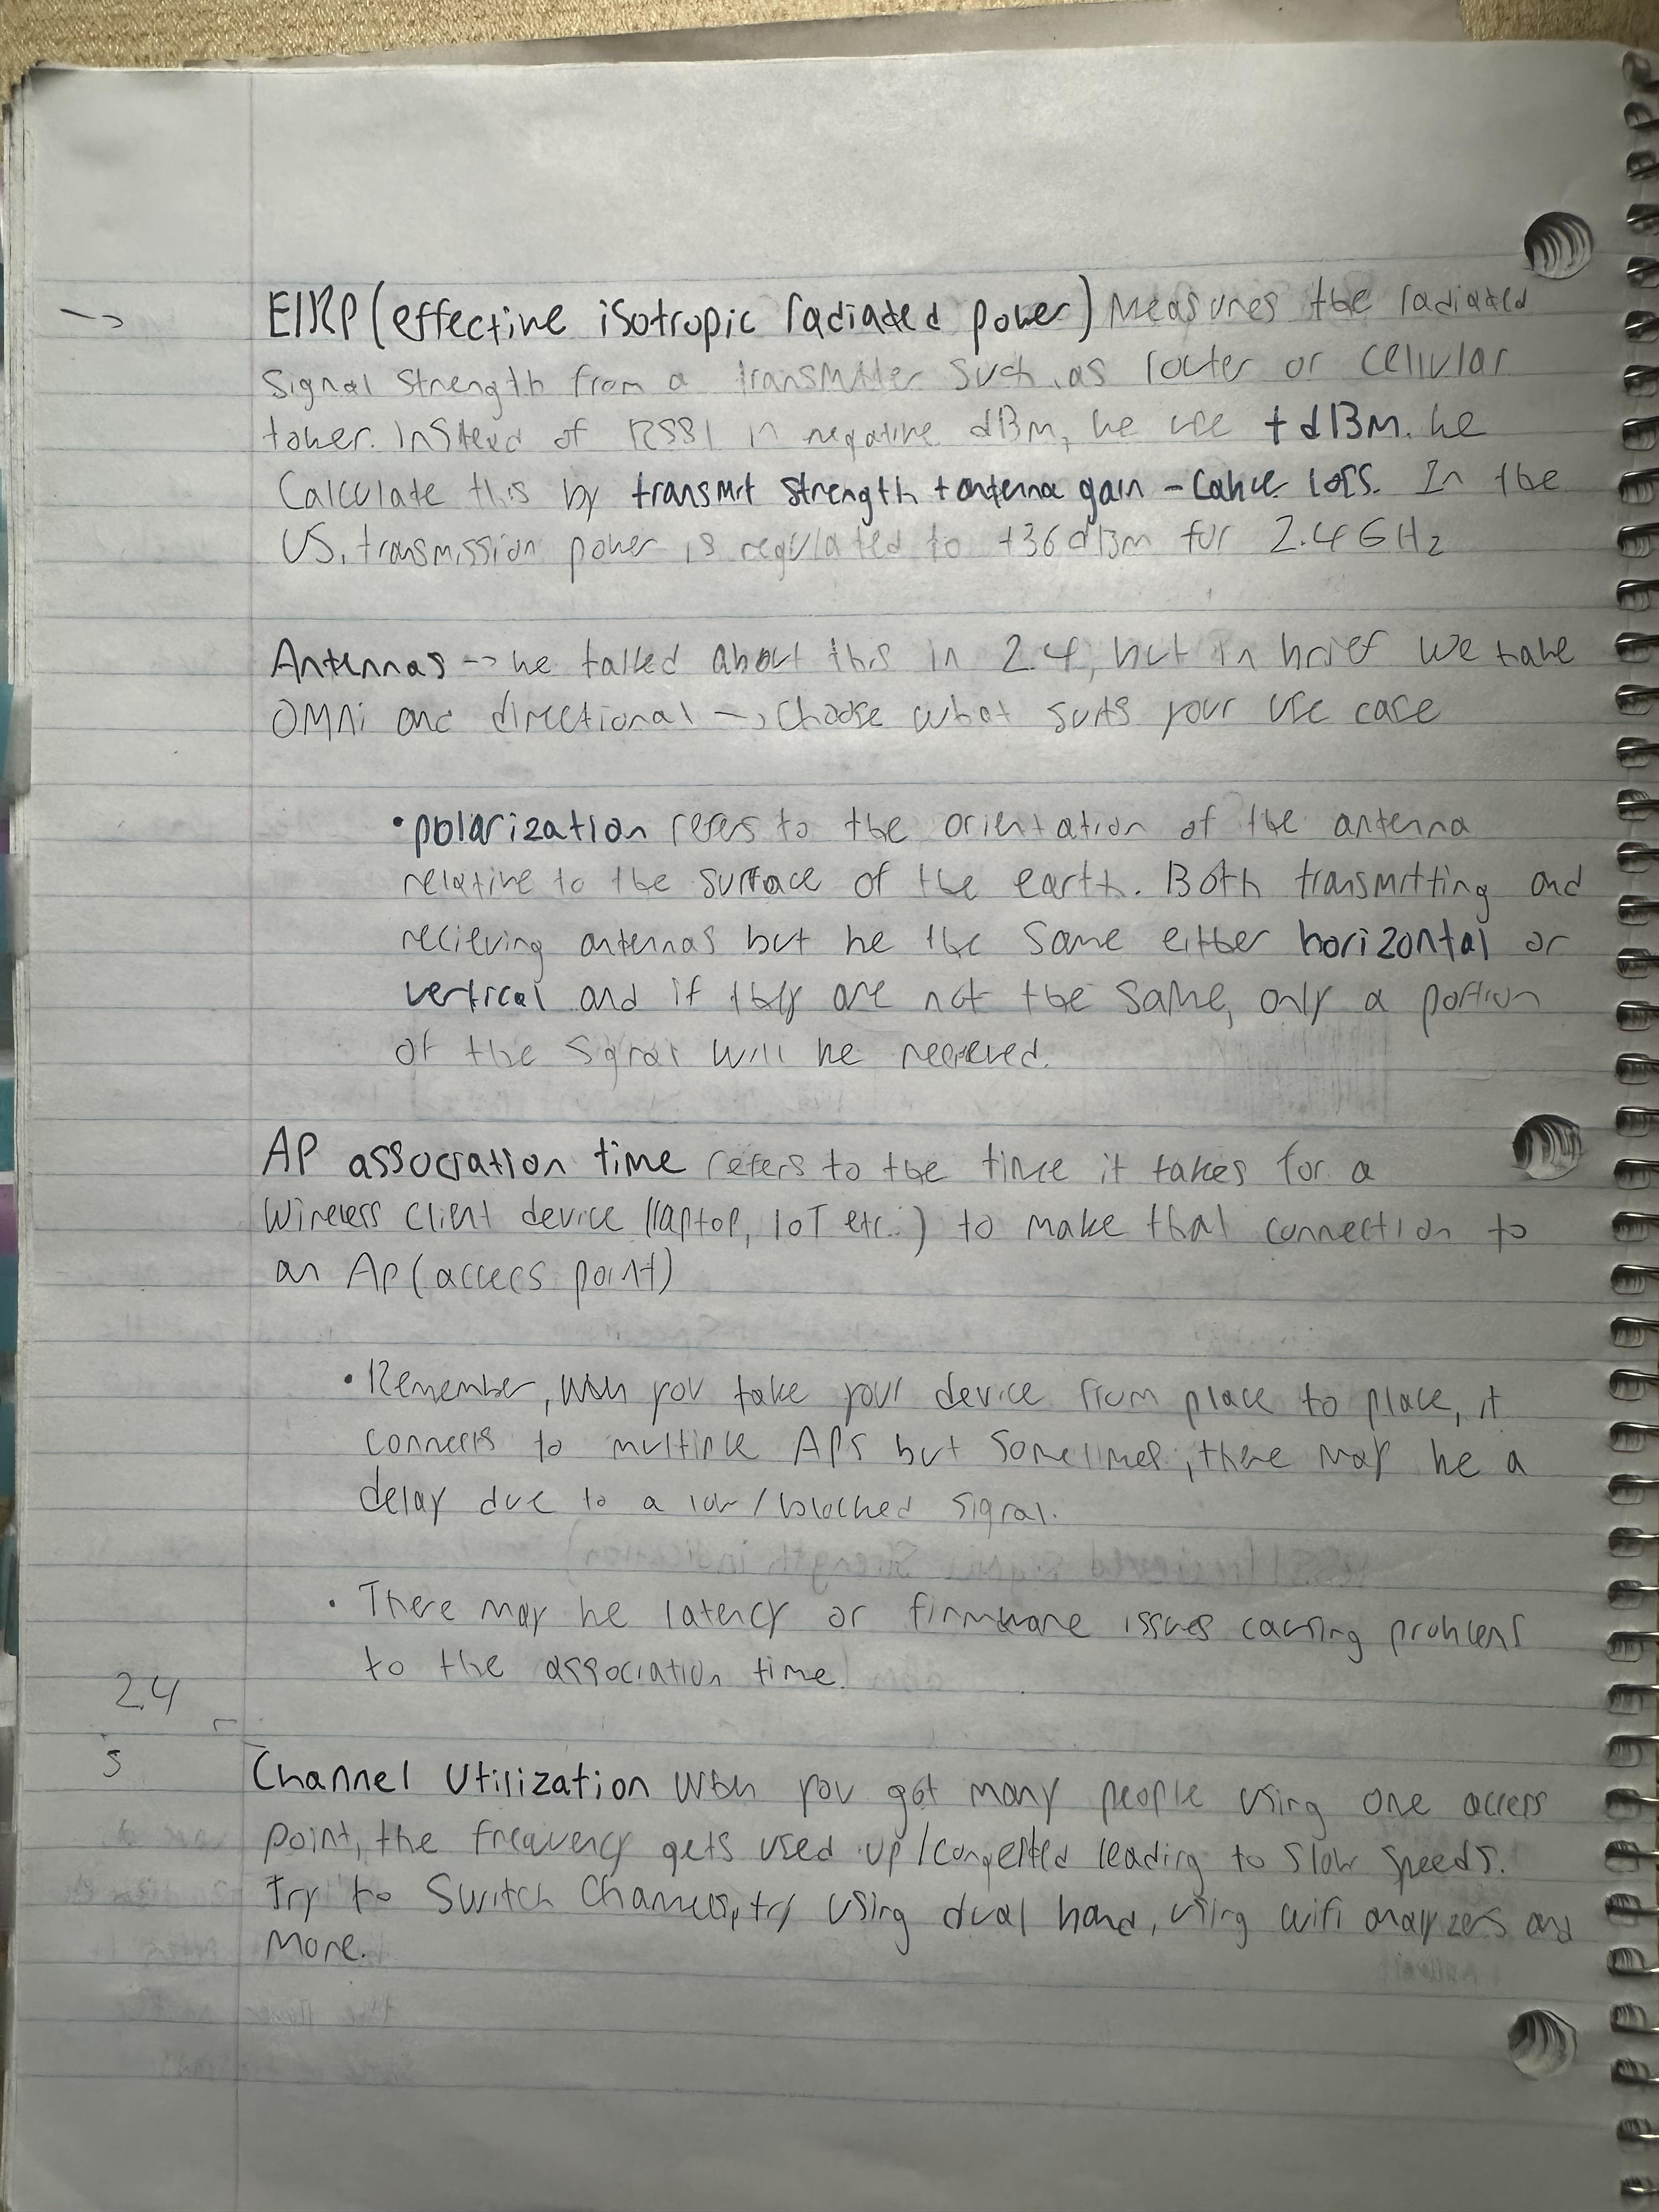 -> EIRP (effective isotropic radiated power) Measures the radiated
Signal Strength from a transmitter such as router or cellular
tower. Instead of RSSI in negative dBm, we use + dBm. We
Calculate this by transmit strength + antenna gain - cable loss. In the
US, transmission power is regulated to +36 dBm for 2.4 GHz
Antennas -> we talked about this in 2.4, but in brief we have
OMNi and directional -> choose what suits your use case
• polarization refers to the orientation of the antenna
relative to the surface of the earth. Both transmitting and
recieving antennas but be the same either horizontal or
vertical and if they are not the same, only a portion
of the signal will be recieved.
AP association time refers to the time it takes for a
wireless client device (laptop, IoT etc.) to make that connection to
an AP (access point)
• Remember, when you take your device from place to place, it
connects to multiple APs but sometimes, there may be a
delay due to a low/blocked signal.
• There may be latency or firmware issues causing problems
to the association time.
2.4
5
Channel Utilization when you got many people using one access
point, the frequency gets used up/congested leading to slow speeds.
Try to switch channels, try using dual band, using wifi analyzers and
more.